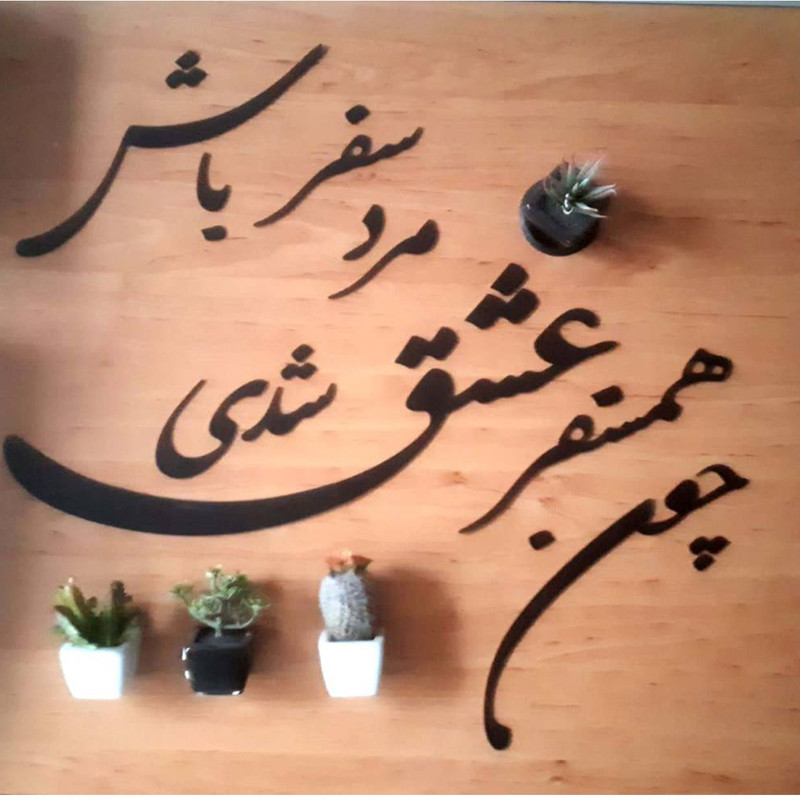 چون همسفر عشق شدی
مرد سفر باش